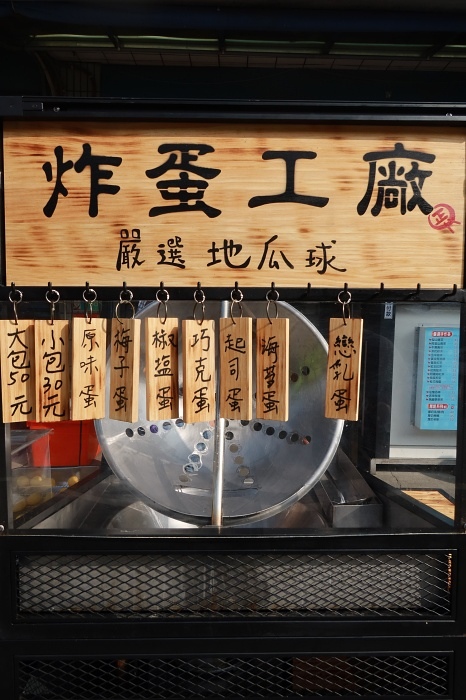 炸蛋工廠
正
嚴選地瓜球
大包50元
小包30元
原味蛋
梅子蛋
椒鹽蛋
巧克蛋
起司蛋
海苔蛋
戀乳蛋